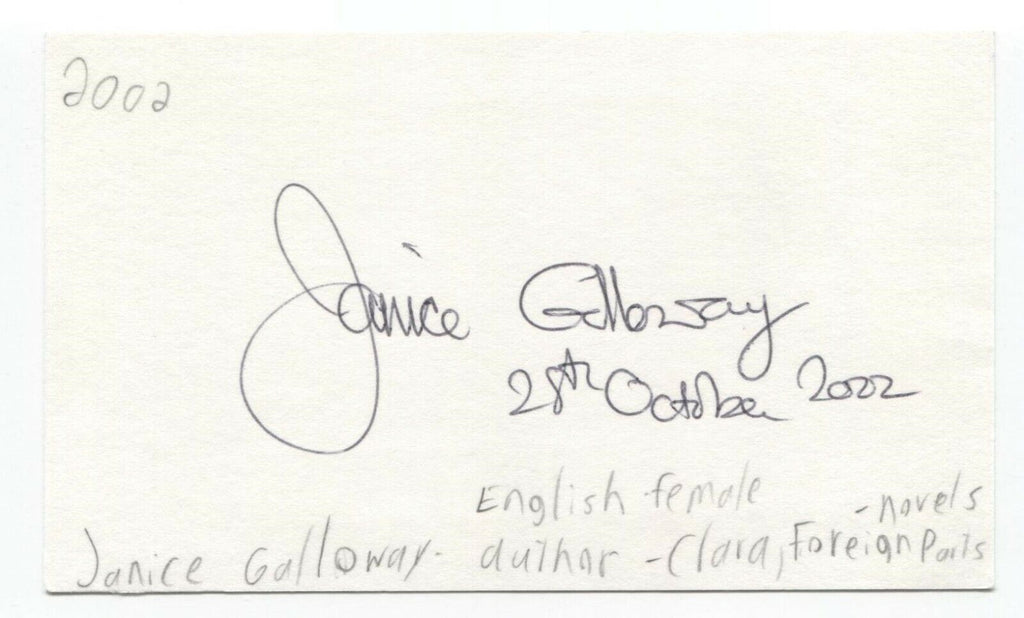 2002
Janice Galloway
28th October 2002
English female
- novels
Janice Galloway - author - Clara, Foreign Parts